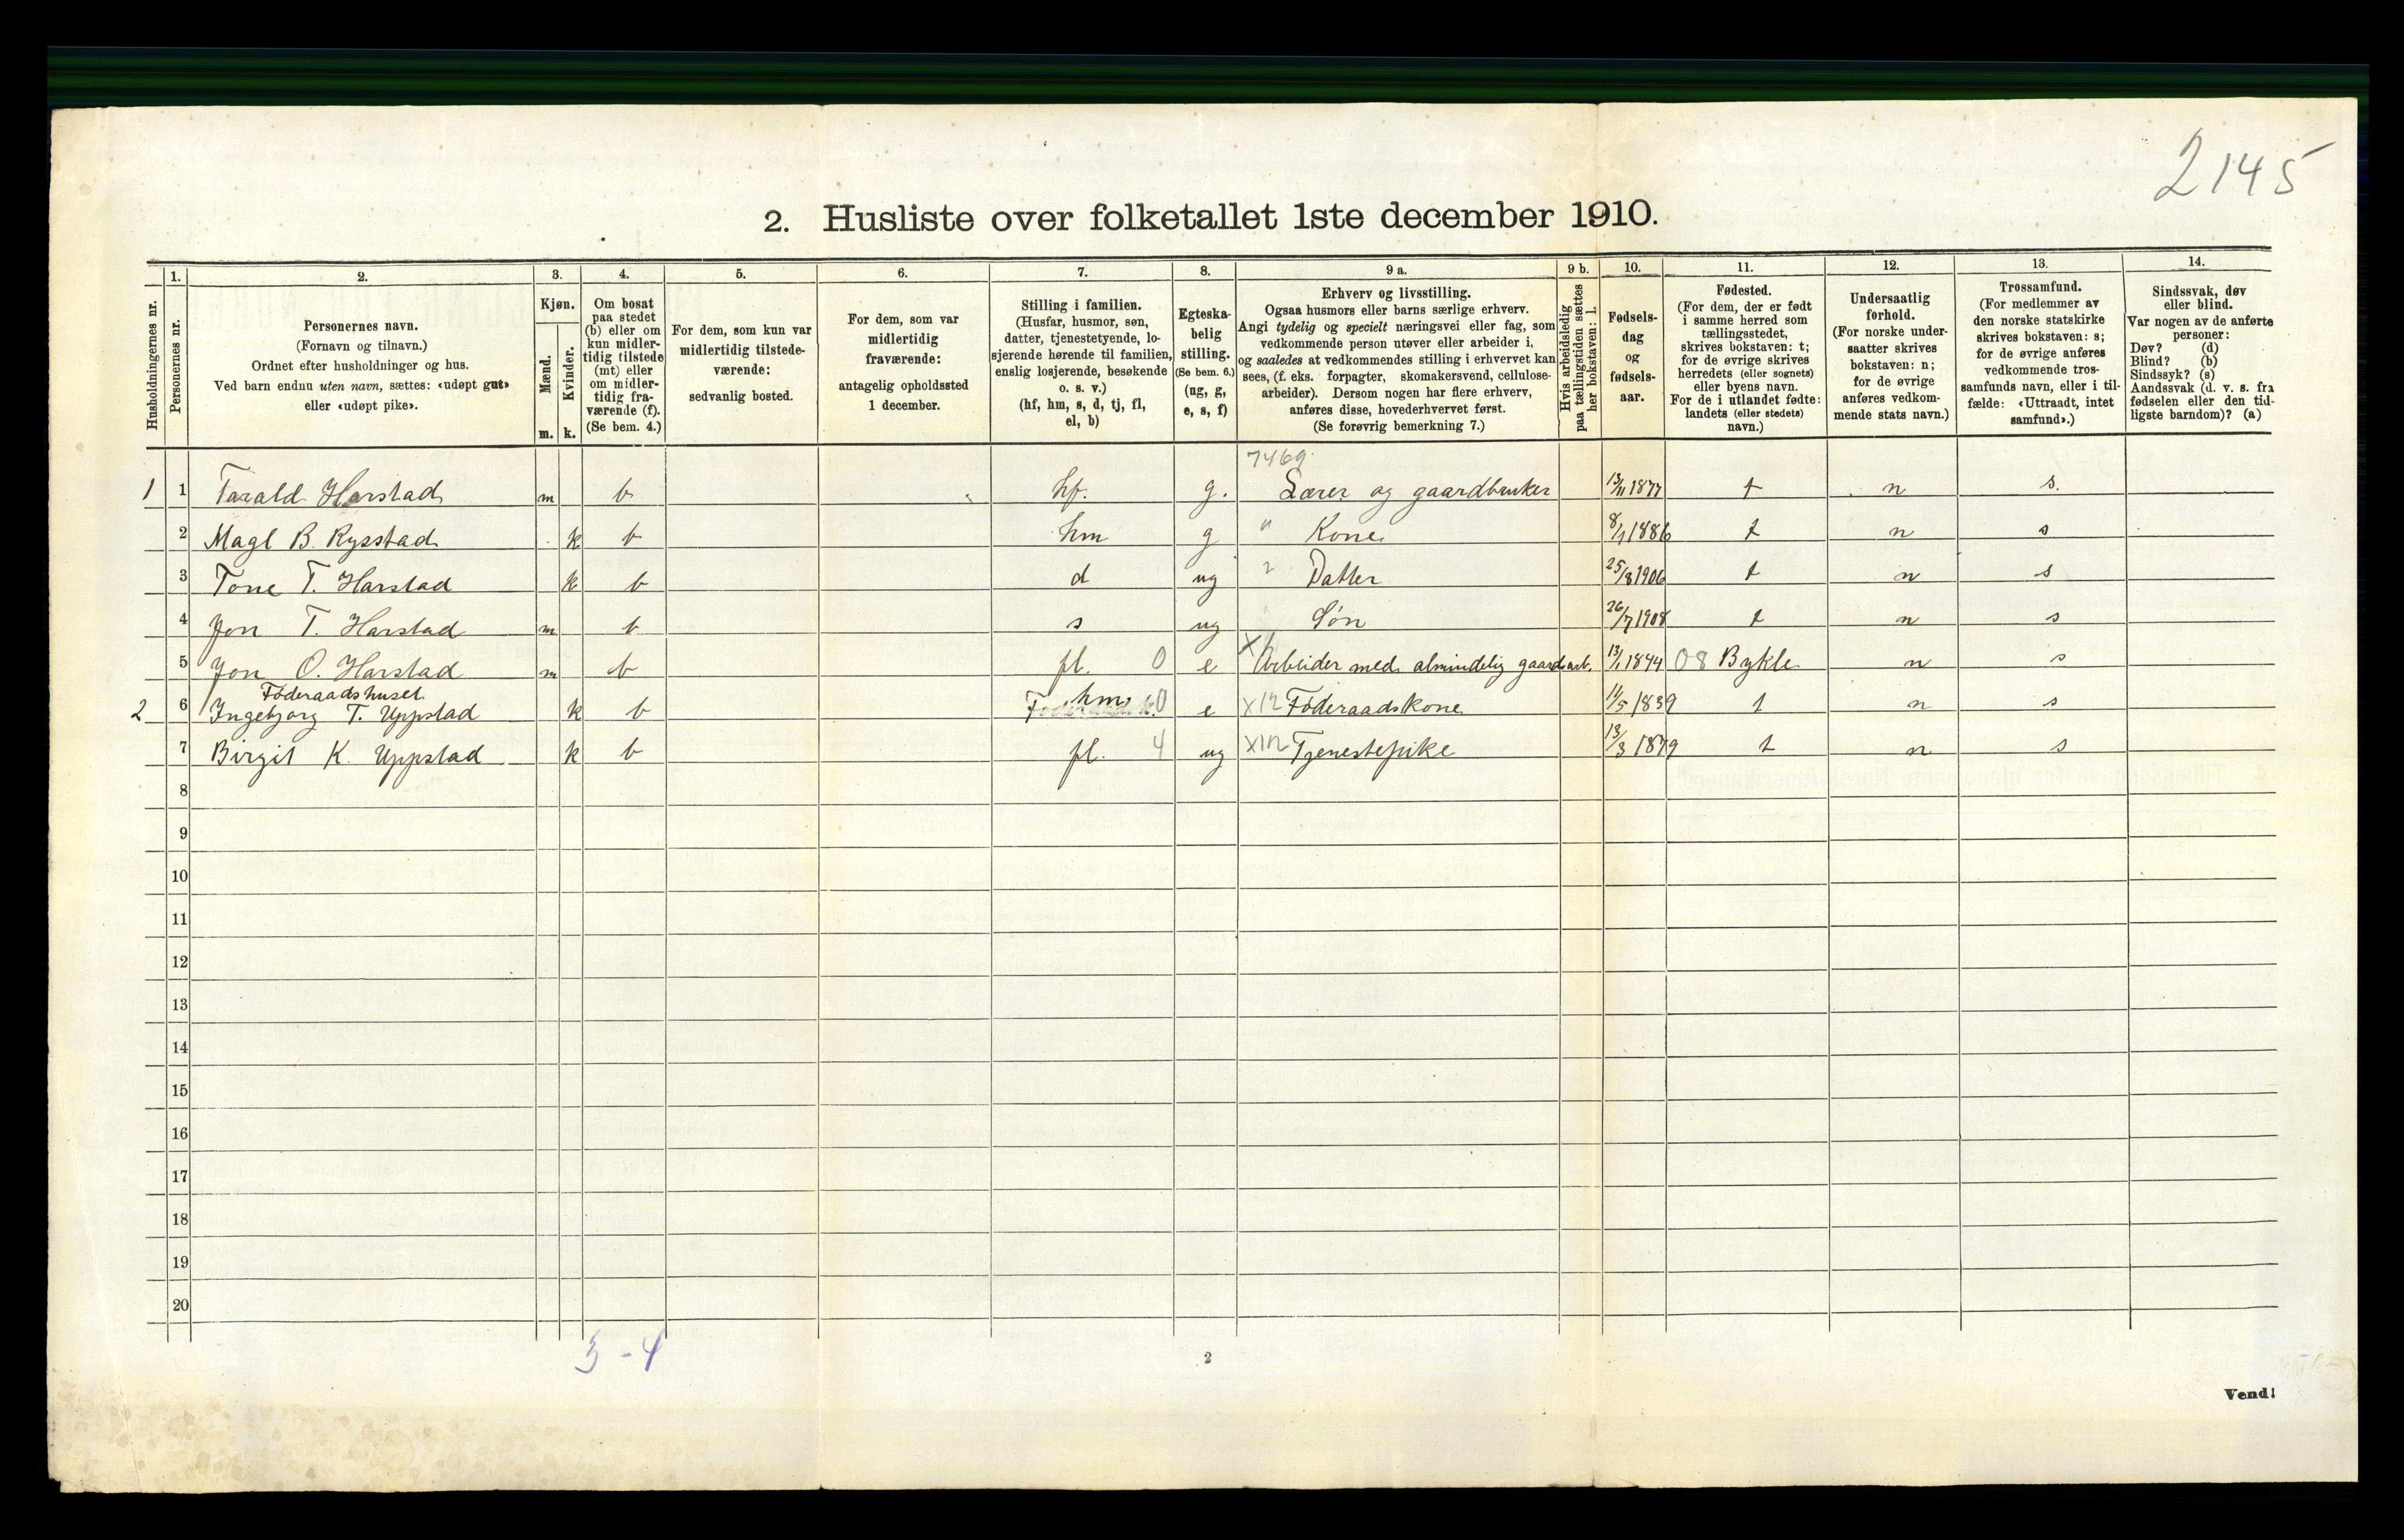 2145
2. Husliste over folketallet 1ste december 1910.
1. 2. 3. 4. 5. 6. 7. 8. 9 a. 9 b. 10. 11. 12. 13. 14.
Husholdningernes nr.
Personernes nr.
Personernes navn.
(Fornavn og tilnavn.)
Ordnet efter husholdninger og hus.
Ved barn endnu uten navn, sættes: «udøpt gut»
eller «udøpt pike».
Kjøn.
Mænd.
Kvinder.
m. k.
Om bosat
paa stedet
(b) eller om
kun midler-
tidig tilstede
(mt) eller
om midler-
tidig fra-
værende (f).
(Se bem. 4.)
For dem, som kun var
midlertidig tilstede-
værende:
sedvanlig bosted.
For dem, som var
midlertidig
fraværende:
antagelig opholdssted
1 december.
Stilling i familien.
(Husfar, husmor, søn,
datter, tjenestetyende, lo-
sjerende hørende til familien,
enslig losjerende, besøkende
o. s. v.)
(hf, hm, s, d, tj, fl,
el, b)
Egteska-
belig
stilling.
(Se bem. 6.)
(ug, g,
e, s, f)
Erhverv og livsstilling.
Ogsaa husmors eller barns særlige erhverv.
Angi tydelig og specielt næringsvei eller fag, som
vedkommende person utøver eller arbeider i,
og saaledes at vedkommendes stilling i erhvervet kan
sees, (f. eks. forpagter, skomakersvend, cellulose-
arbeider). Dersom nogen har flere erhverv,
anføres disse, hovederhvervet først.
(Se forøvrig bemerkning 7.)
Hvis arbeidsledig
paa tællingstiden sættes
her bokstaven: l.
Fødsels-
dag
og
fødsels-
aar.
Fødested.
(For dem, der er født
i samme herred som
tællingsstedet,
skrives bokstaven: t;
for de øvrige skrives
herredets (eller sognets)
eller byens navn.
For de i utlandet fødte:
landets (eller stedets)
navn.)
Undersaatlig
forhold.
(For norske under-
saatter skrives
bokstaven: n;
for de øvrige
anføres vedkom-
mende stats navn.)
Trossamfund.
(For medlemmer av
den norske statskirke
skrives bokstaven: s;
for de øvrige anføres
vedkommende tros-
samfunds navn, eller i til-
fælde: «Uttraadt, intet
samfund».)
Sindssvak, døv
eller blind.
Var nogen av de anførte
personer:
Døv? (d)
Blind? (b)
Sindssyk? (s)
Aandssvak (d. v. s. fra
fødselen eller den tid-
ligste barndom)? (a)
7469
1 1 Tarald Harstad m b hf. g. Lærer og gaardbruker 13/11 1877 t n s.
2 Magl B. Rysstad k b hm g " Kone 8/1 1886 t n s
3 Tone T. Harstad k b d ug Datter 25/8 1906 t n s
4 Jon T. Harstad m b s ug Søn 26/7 1908 t n s
5 Jon O. Harstad m b fl. 0 e Arbeider med almindelig gaardsarb. 13/1 1844 08 Bykle n s
Føderaadshuset
2 6 Ingebjørg T. Uppstad k b hm 0 e X12 Føderaadskone 11/5 1839 t n s
7 Birgit K. Uppstad k b fl. 4 ug X12 Tjenestepike 13/3 1879 t n s
8
9
10
11
12
13
14
15
16
17
18
19
20
3 - 4
2
Vend!